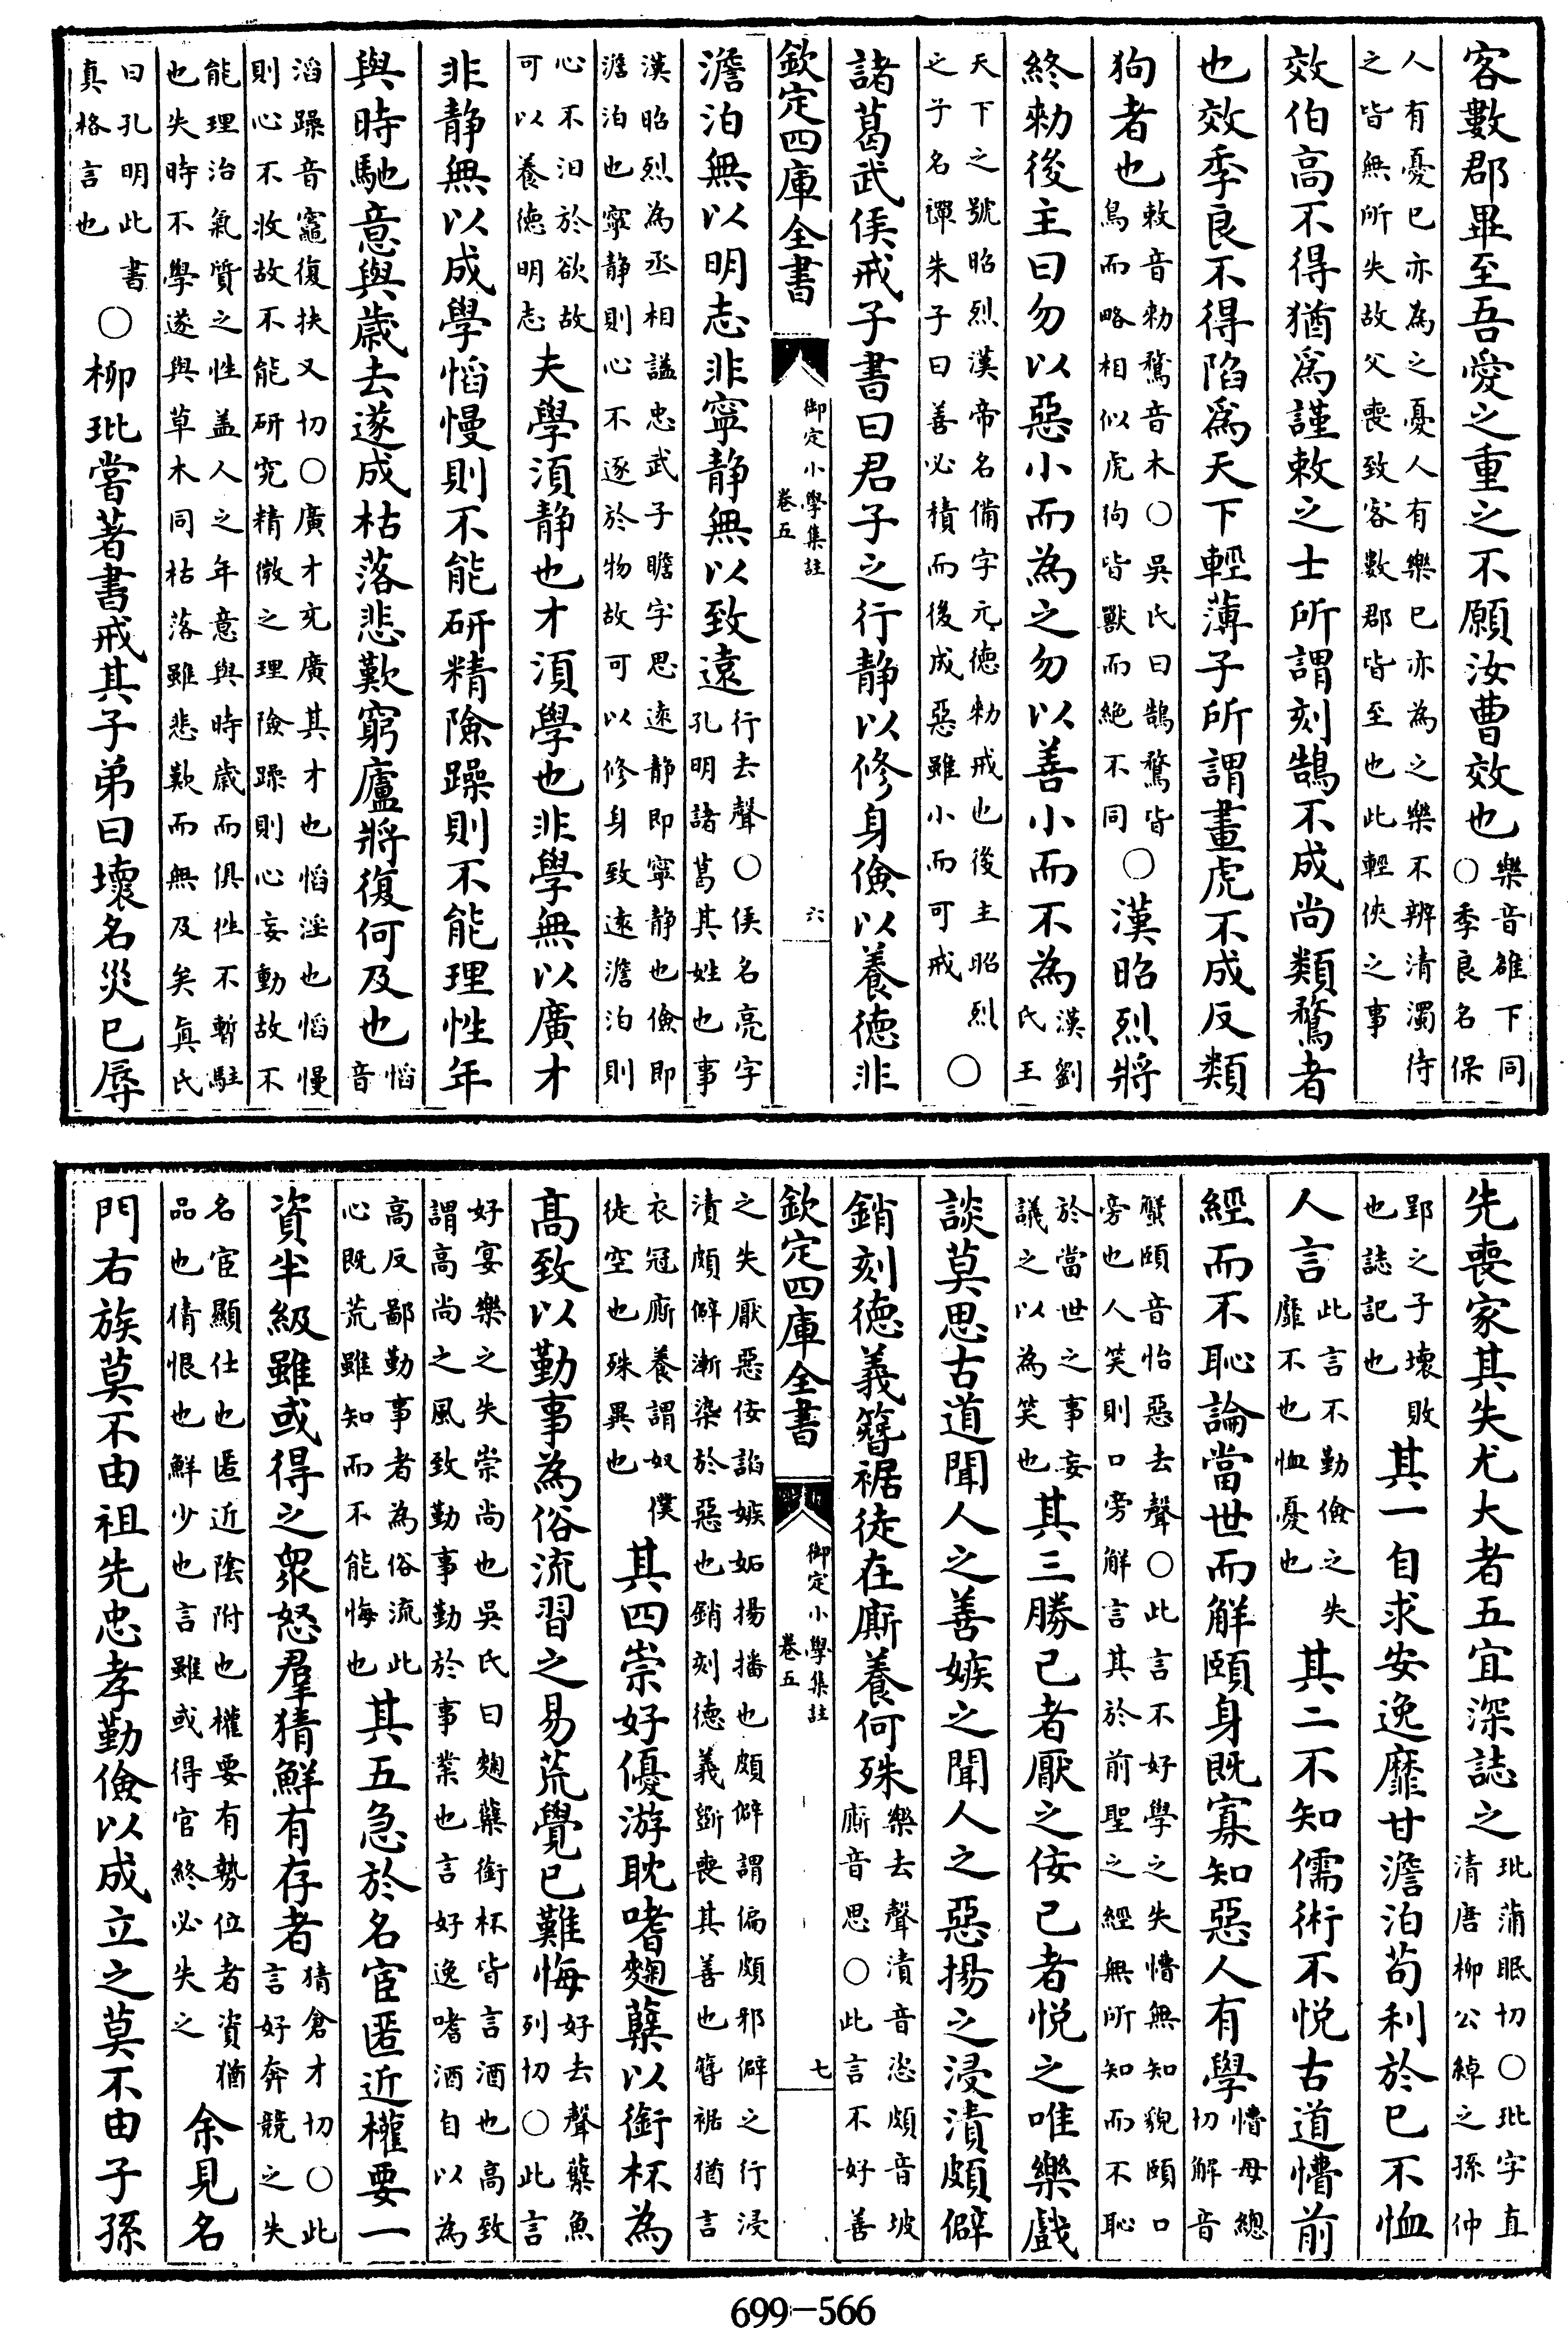 客數郡畢至吾愛之重之不願汝曹效也樂音雒下同○季良名保
人有憂已亦為之憂人有樂已亦為之樂不辨清濁待之皆無所失故父喪致客數郡皆至也此輕俠之事
效伯高不得猶爲謹敕之士所謂刻鵠不成尚類鶩者
也效季良不得陷爲天下輕薄子所謂畫虎不成反類
狗者也敕音勑鶩音木○吳氏曰鵠鶩皆鳥而略相似虎狗皆獸而絕不同○漢昭烈將
終勑後主曰勿以惡小而為之勿以善小而不為漢劉氏王
天下之號昭烈漢帝名備字元德勑戒也後主昭烈之子名禪朱子曰善必積而後成惡雖小而可戒○
諸葛武侯戒子書曰君子之行静以修身儉以養德非
欽定四庫全書
御定小學集註
卷五
六
澹泊無以明志非寧静無以致遠行去聲○侯名亮字孔明諸葛其姓也事
漢昭烈為丞相諡忠武子瞻字思遠静即寧静也儉即澹泊也寧静則心不逐於物故可以修身致遠澹泊則
心不汩於欲故可以養德明志夫學須静也才須學也非學無以廣才
非静無以成學慆慢則不能研精險躁則不能理性年
與時馳意與歲去遂成枯落悲歎窮廬將復何及也慆音
滔躁音竈復扶又切○廣才充廣其才也慆淫也慆慢則心不收故不能研究精微之理險躁則心妄動故不
能理治氣質之性盖人之年意與時歲而俱徃不暫駐也失時不學遂與草木同枯落雖悲歎而無及矣真氏
曰孔明此書真格言也○柳玭嘗著書戒其子弟曰壞名災已辱
先喪家其失尤大者五宜深誌之玭蒲眠切○玭字直清唐柳公綽之孫仲
郢之子壞敗也誌記也其一自求安逸靡甘澹泊苟利於已不恤
人言此言不勤儉之失靡不也恤憂也其二不知儒術不悅古道懵前
經而不恥論當世而解頤身既寡知惡人有學懵母總切解音
蟹頤音怡惡去聲○此言不好學之失懵無知貌頤口旁也人笑則口旁解言其於前聖之經無所知而不恥
於當世之事妄議之以為笑也其三勝已者厭之佞已者悅之唯樂戲
談莫思古道聞人之善嫉之聞人之惡揚之浸漬頗僻
銷刻德義簪裾徒在廝養何殊樂去聲漬音恣頗音坡廝音思○此言不好善
欽定四庫全書
御定小學集註
卷五
七
之失厭惡佞諂嫉妬揚播也頗僻謂偏頗邪僻之行浸漬頗僻漸染於惡也銷刻德義斵喪其善也簪裾猶言
衣冠廝養謂奴僕徒空也殊異也其四崇好優游耽嗜麴糵以銜杯為
高致以勤事為俗流習之易荒覺已難悔好去聲糵魚列切○此言
好宴樂之失崇尚也吳氏曰麴糵銜杯皆言酒也高致謂高尚之風致勤事勤於事業也言好逸嗜酒自以為
高反鄙勤事者為俗流此心既荒雖知而不能悔也其五急於名宦匿近權要一
資半級雖或得之眾怒羣猜鮮有存者猜倉才切○此言好奔競之失
名宦顯仕也匿近陰附也權要有勢位者資猶品也猜恨也鮮少也言雖或得官終必失之余見名
門右族莫不由祖先忠孝勤儉以成立之莫不由子孫
699-566